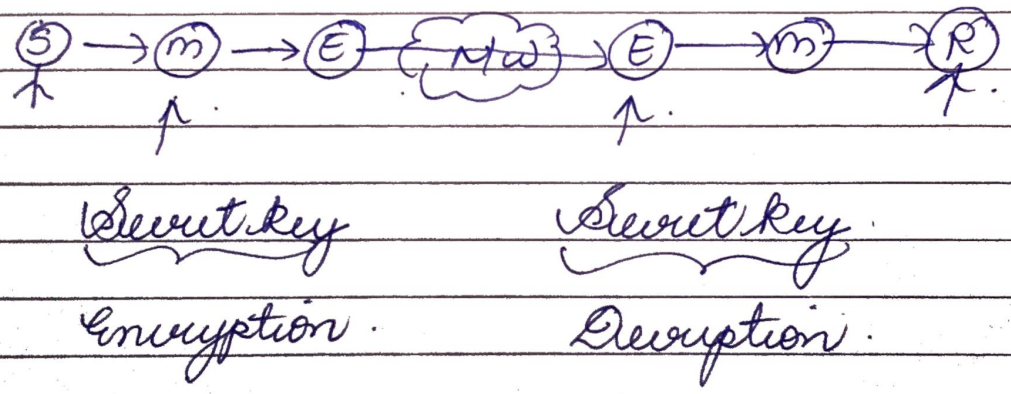 S → m → E → N/W → E → m → R
Secret key Secret key.
Encryption. Decryption.